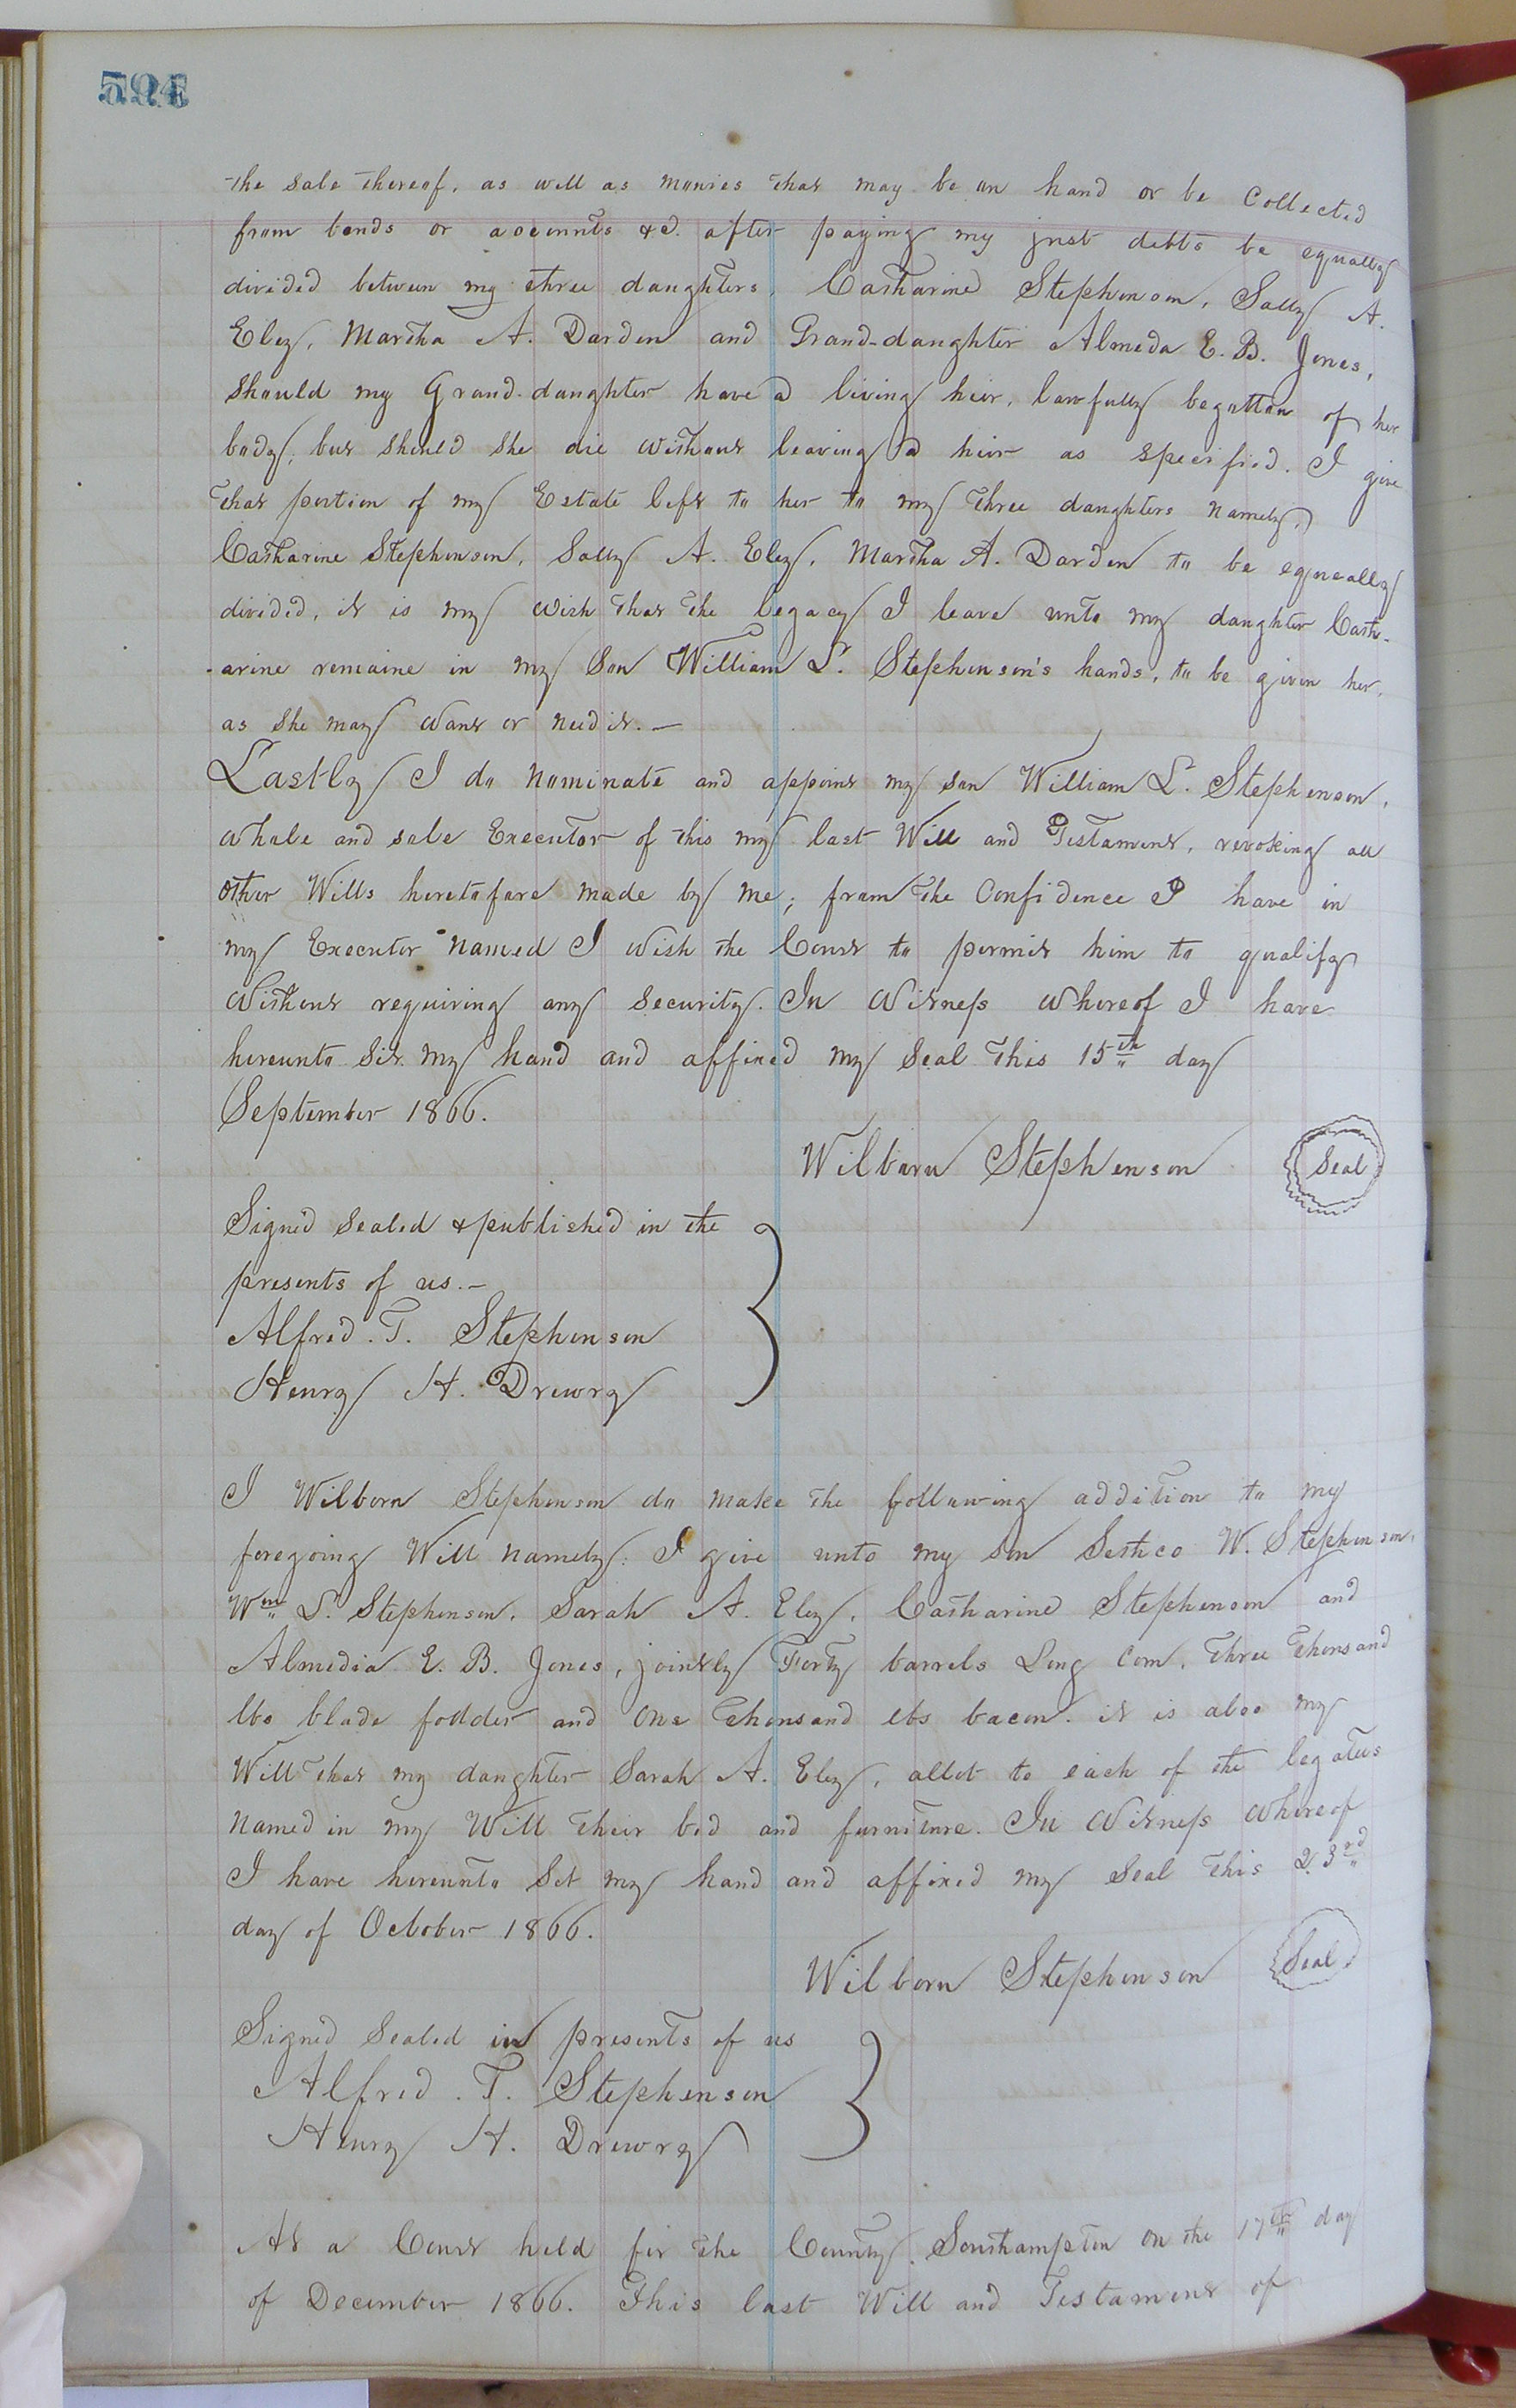 the sale thereof, as well as monies that may be on hand or be Collected
from bonds or accounts &c. after paying my just debts be equally
divided between my three daughters, Catharine Stephenson, Sally A.
Eley, Martha A. Darden and Grand-daughter Almeda E. B. Jones,
should my Grand-daughter have a living heir, lawfully begotten of her
body, but should she die without leaving a heir as specified. I give
that portion of my Estate left to her to my three daughters namely,
Catharine Stephenson, Sally A. Eley, Martha A. Darden to be equeally
divided, it is my wish that the legacy I leave unto my daughter Cath-
-arine remaine in my Son William L. Stephenson's hands, to be given her,
as she may want or need it. —
Lastly I do nominate and appoint my son William L. Stephenson,
whole and sole Executor of this my last Will and Testament, revoking all
other Wills heretofore made by me; from the Confidence I have in
my Executor named I wish the Court to permit him to qualify
Without requiring any security. In Witness whereof I have
hereunto set my hand and affixed my Seal this 15th day
September 1866.
Wilborn Stephenson Seal
Signed Sealed & published in the
presents of us. —
Alfred. T. Stephenson
Henry H. Drewry
I Wilborn Stephenson do make the following addition to my
foregoing Will namely: I give unto my son W. Stephenson,
Wm L. Stephenson, Sarah A. Eley, Catharine Stephenson and
Almedia E. B. Jones, jointly Forty barrels Long Corn, Three thousand
lbs blade fodder and One thousand lbs bacon. it is also my
Will that my daughter Sarah A. Eley, allot to each of the legatees
named in my Will their bed and furniture. In Witness whereof
I have hereunto Set my hand and affixed my Seal this 23rd
day of October 1866.
Wilborn Stephenson Seal
Signed Sealed in presents of us
Alfred. T. Stephenson
Henry H. Drewry
At a Court held for the County Southampton on the 17th day
of December 1866. This last Will and Testament of